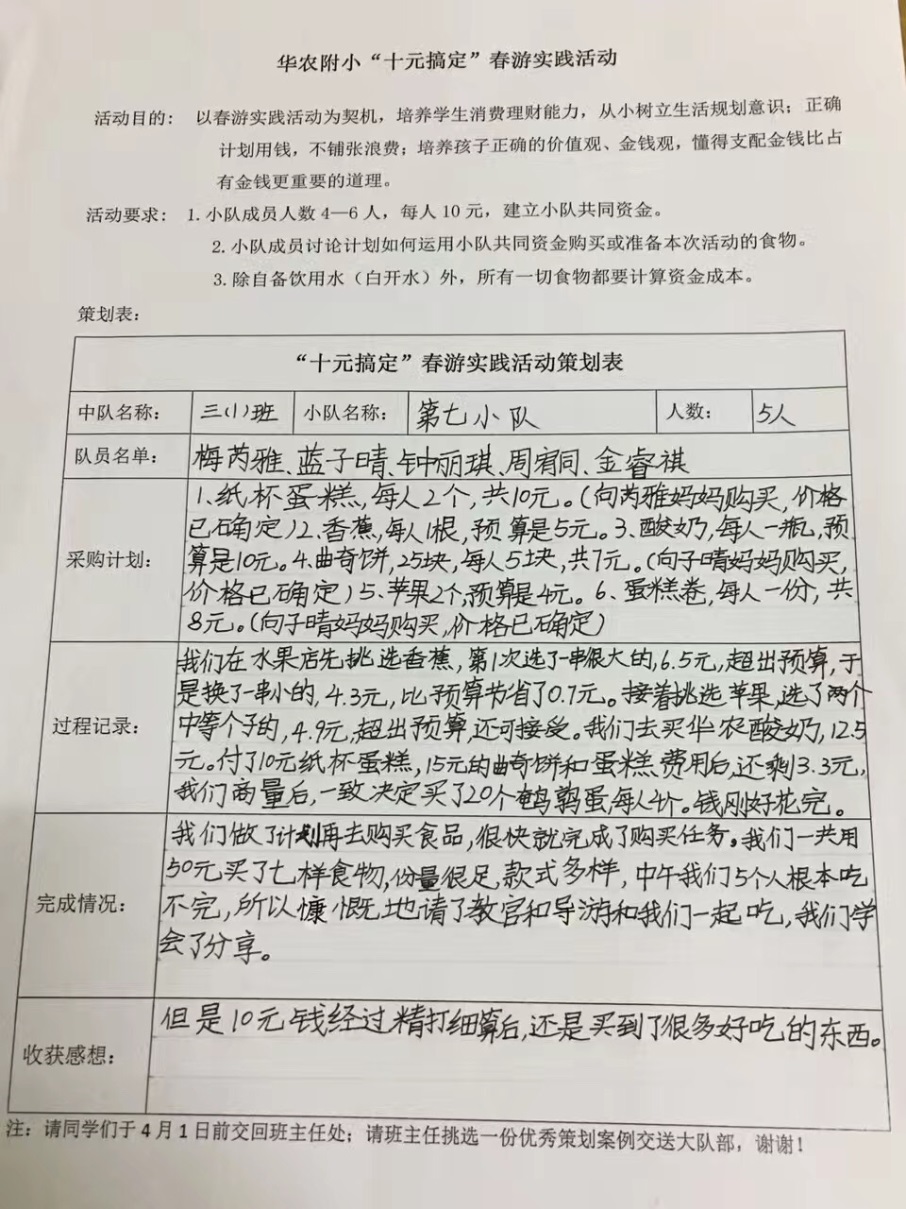 华农附小“十元搞定”春游实践活动
活动目的: 以春游实践活动为契机，培养学生消费理财能力，从小树立生活规划意识；正确
计划用钱，不铺张浪费；培养孩子正确的价值观、金钱观，懂得支配金钱比占
有金钱更重要的道理。
活动要求: 1.小队成员人数 4—6 人，每人 10 元，建立小队共同资金。
2.小队成员讨论计划如何运用小队共同资金购买或准备本次活动的食物。
3.除自备饮用水（白开水）外，所有一切食物都要计算资金成本。
策划表:
“十元搞定”春游实践活动策划表
中队名称: 三(1)班 小队名称: 第七小队 人数: 5人
队员名单: 梅芮雅、蓝子晴、钟丽琪、周宥同、金睿祺
采购计划:
1、纸杯蛋糕，每人2个，共10元。(向芮雅妈妈购买，价格
已确定)2、香蕉，每人1根，预算是5元。3、酸奶，每人一瓶，预
算是10元。4、曲奇饼，25块，每人5块，共7元。(向子晴妈妈购买，
价格已确定)5、苹果2个，预算是4元。6、蛋糕卷，每人一份，共
8元。(向子晴妈妈购买，价格已确定)
过程记录:
我们在水果店先挑选香蕉，第1次选了一串很大的，6.5元，超出预算，于
是换了一串小的，4.3元，比预算节省了0.7元。接着挑选苹果，选了两个
中等个子的，4.9元，超出预算，还可接受。我们去买华农酸奶，12.5
元。付了10元纸杯蛋糕，15元的曲奇饼和蛋糕费用后，还剩3.3元，
我们商量后，一致决定买了20个鹌鹑蛋，每人4个。钱刚好花完。
完成情况:
我们做了计划再去购买食品，很快就完成了购买任务。我们一共用
50元买了七样食物，份量很足，款式多样，中午我们5个人根本吃
不完，所以慷慨地请了教官和导游和我们一起吃，我们学
会了分享。
收获感想:
但是10元钱经过精打细算后，还是买到了很多好吃的东西。
注: 请同学们于 4 月 1 日前交回班主任处；请班主任挑选一份优秀策划案例交送大队部，谢谢！